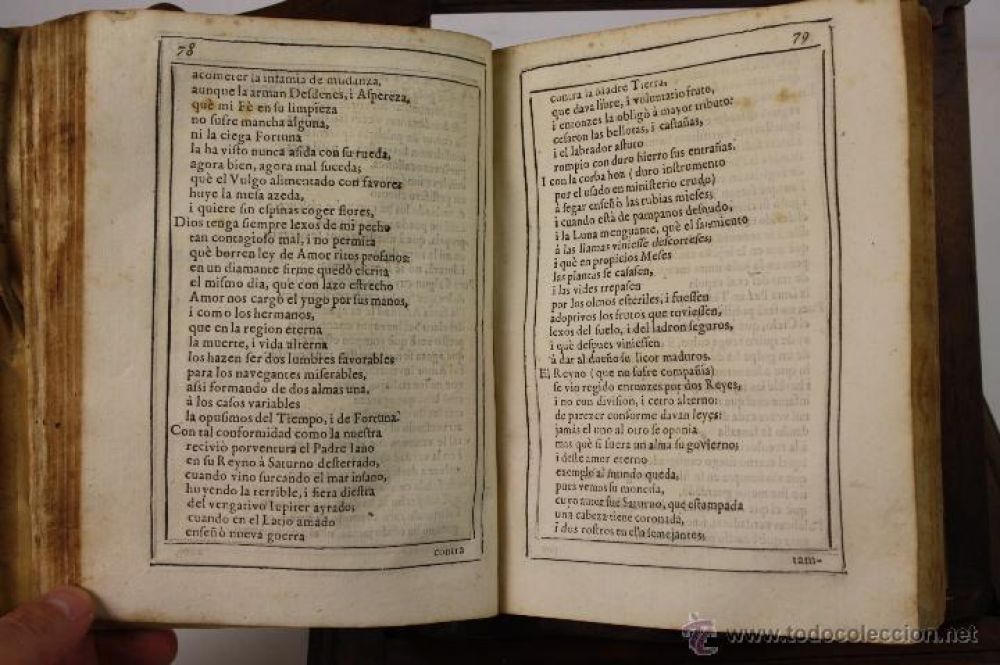 78
acometer la infamia de mudanza,
aunque la arman Desdenes, i Aspereza,
què mi Fè en su limpieza
no sufre mancha alguna,
ni la ciega Fortuna
la ha visto nunca asida con su rueda,
agora bien, agora mal suceda;
què el Vulgo alimentado con favores
huye la mesa azeda,
i quiere sin espinas coger flores,
Dios tenga siempre lexos de mi pecho
tan contagioso mal, i no permita
què borren ley de Amor ritos profanos:
en un diamante firme quedò escrita
el mismo dia, que con lazo estrecho
Amor nos cargò el yugo por sus manos,
i como los hermanos,
que en la region eterna
la muerte, i vida alterna
los hazen ser dos lumbres favorables
para los navegantes miserables,
assi formando de dos almas una,
à los casos variables
la opusimos del Tiempo, i de Fortuna.
Con tal conformidad como la nuestra
recivió porventura el Padre Iano
en su Reyno à Saturno desterrado,
cuando vino surcando el mar insano,
huyendo la terrible, i fiera diestra
del vengativo Iupiter ayrado;
cuando en el Lacio amado
enseñò nueva guerra
contra
79
contra la Madre Tierra,
que dava libre, i voluntario fruto,
i entonzes la obligò à mayor tributo:
cesaron las bellotas, i castañas,
i el labrador astuto
rompio con duro hierro sus entrañas.
I con la corba hoz (duro instrumento
por el usado en ministerio crudo)
à segar enseñò las rubias mieses;
i cuando està de pampanos desnudo,
i la Luna menguante, què el sarmiento
à las llamas viniesse descorteses;
i què en propicios Meses
las plantas se casasen,
i las vides trepasen
por los olmos esteriles, i fuessen
adoptivos los frutos que tuviessen,
lexos del suelo, i del ladron seguros,
i què despues viniessen
à dar al dueño su licor maduros.
El Reyno (que no sufre compañia)
se vio regido entonzes por dos Reyes,
i no con division, i cetro alterno:
de parezer conforme davan leyes:
jamis el uno al otro se oponia
mas què si fuera un alma su govierno;
i deste amor eterno
exemplo al mundo queda,
pues vemos su moneda,
cuyo autor fue Saturno, que estampada
una cabeza tiene coronada,
i dos rostros en essa semejantes;
tam-
www.todocoleccion.net